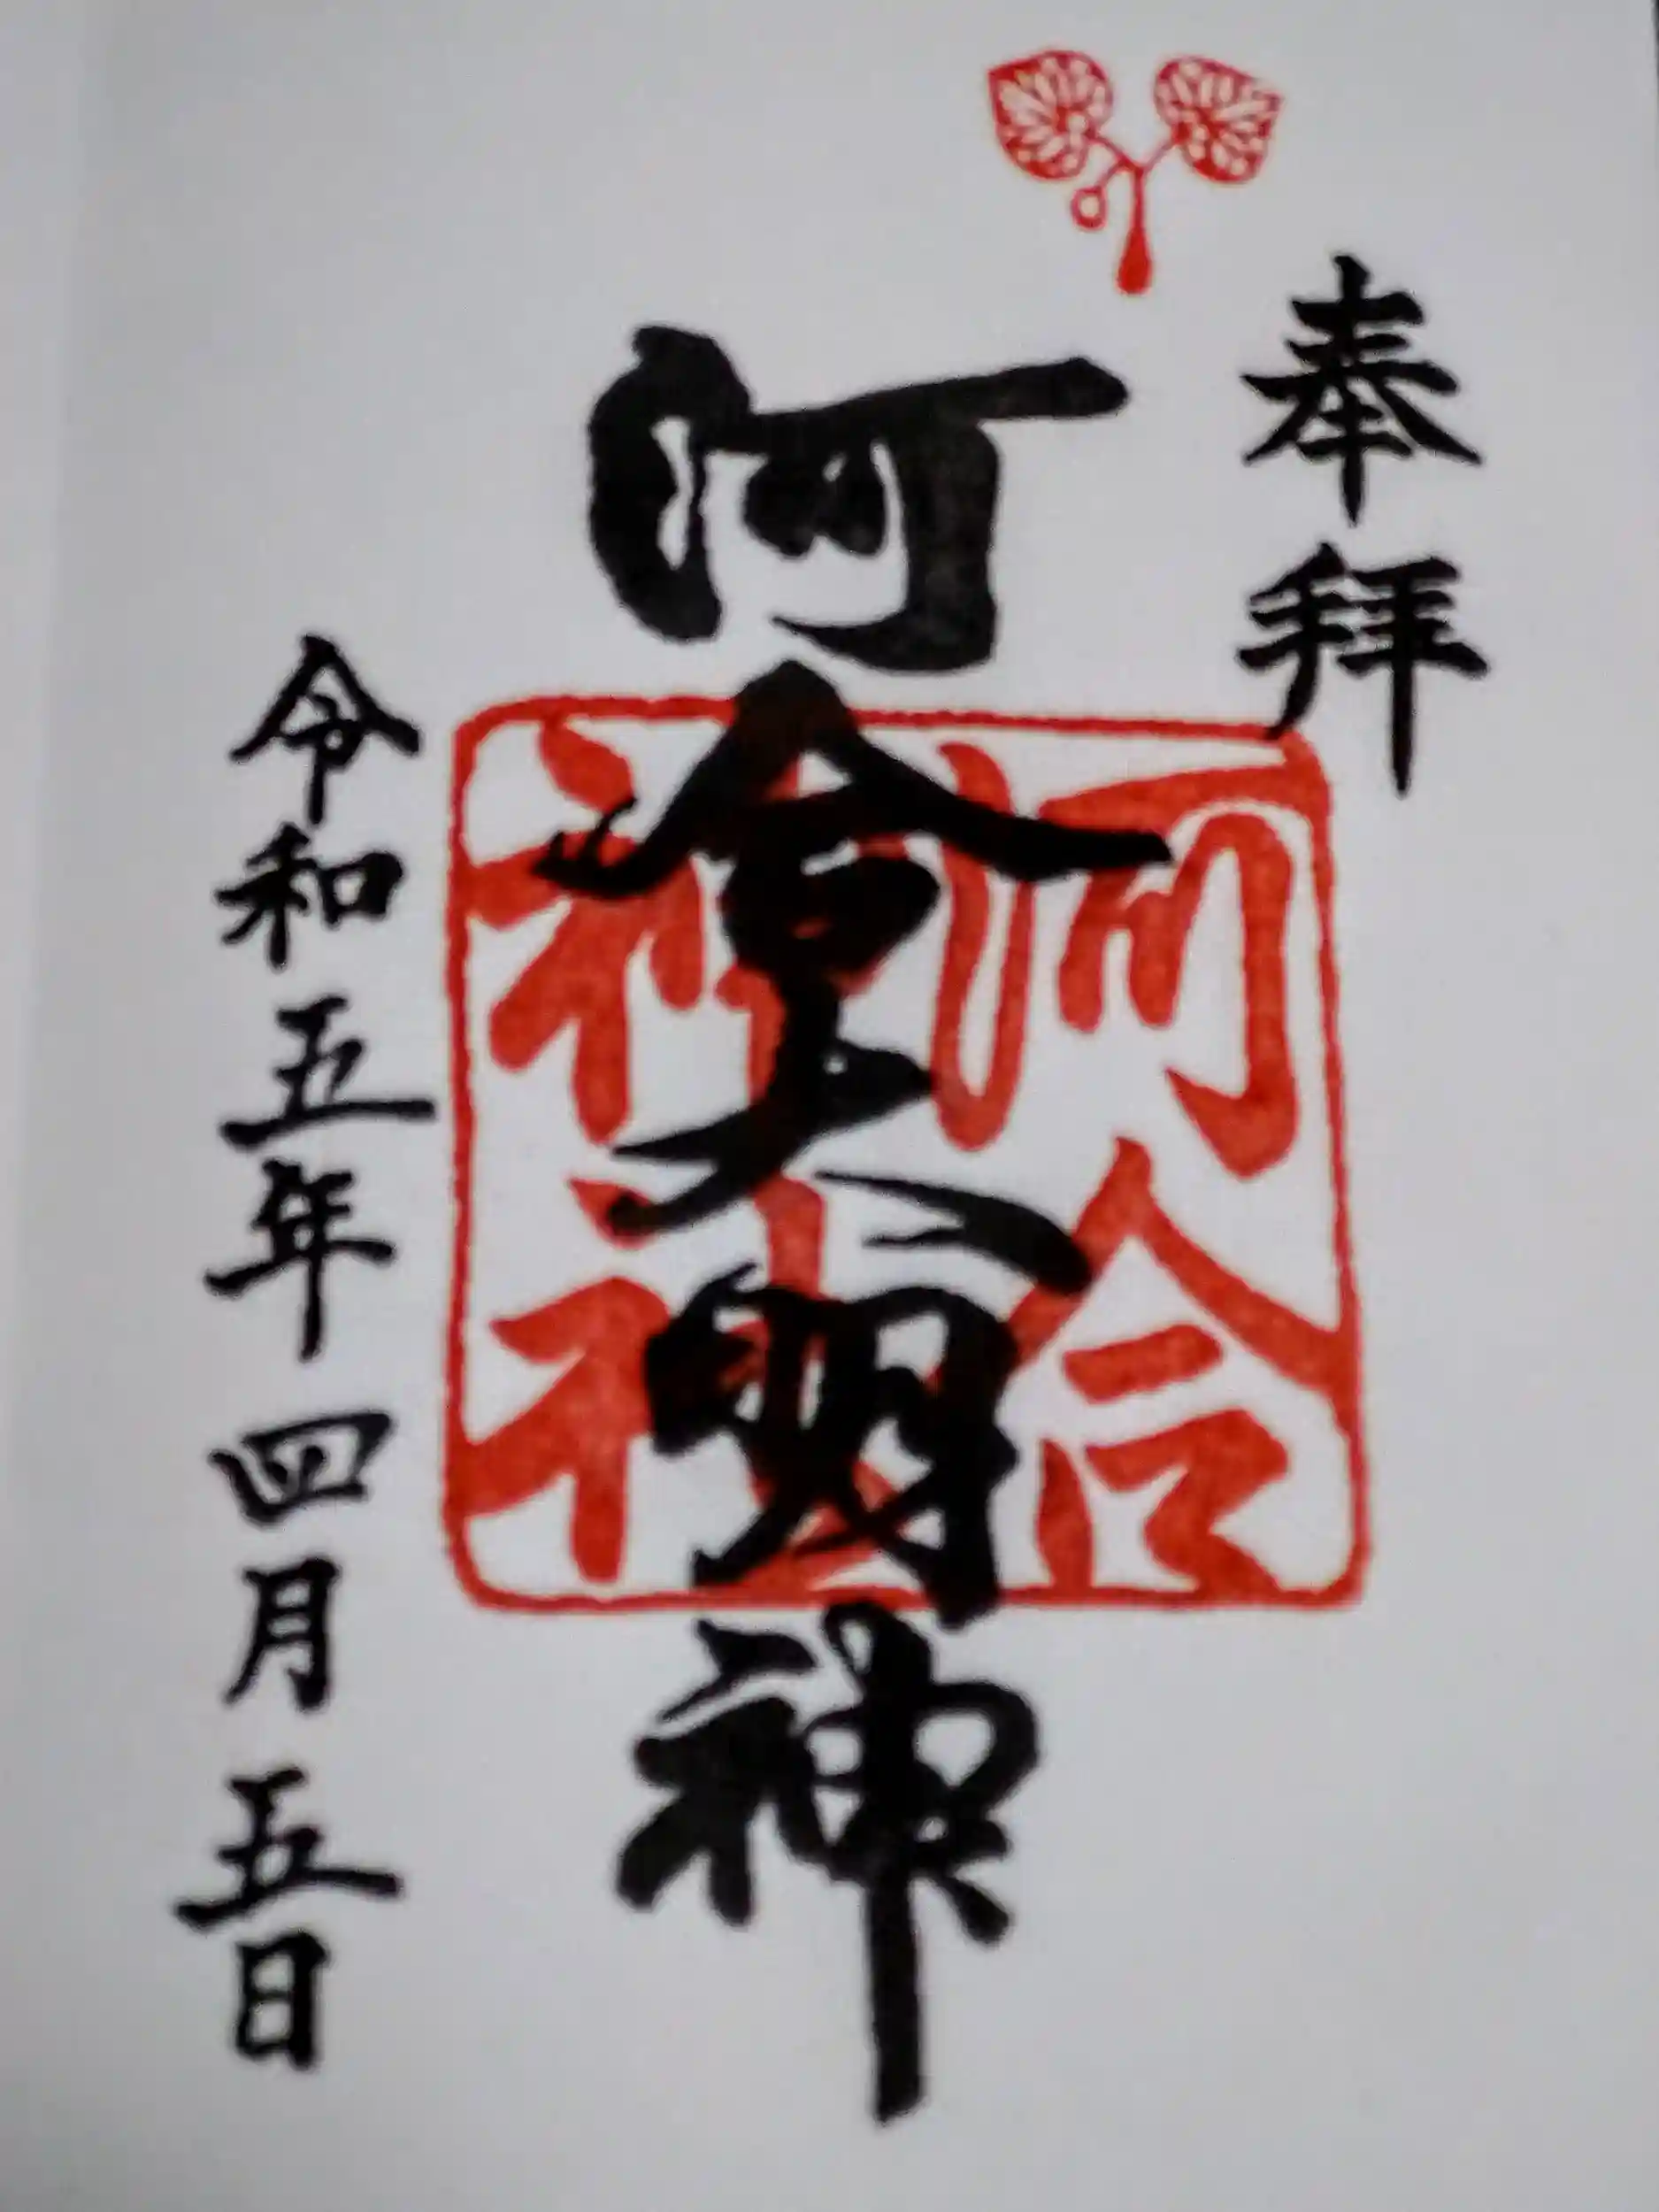 奉拝
河合大明神
河合神社
令和五年四月五日